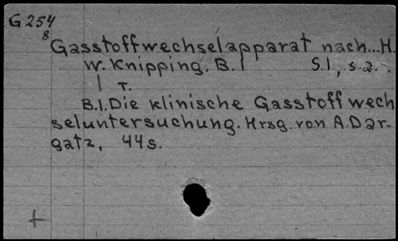 G 254
8
Gasstoffwechselapparat nach...H.
W. Knipping. B. I S.l., s.a.
I т.
B.I. Die klinische Gasstoffwech
seluntersuchung. Hrsg. von A. Dar-
gatz, 44 s.
+